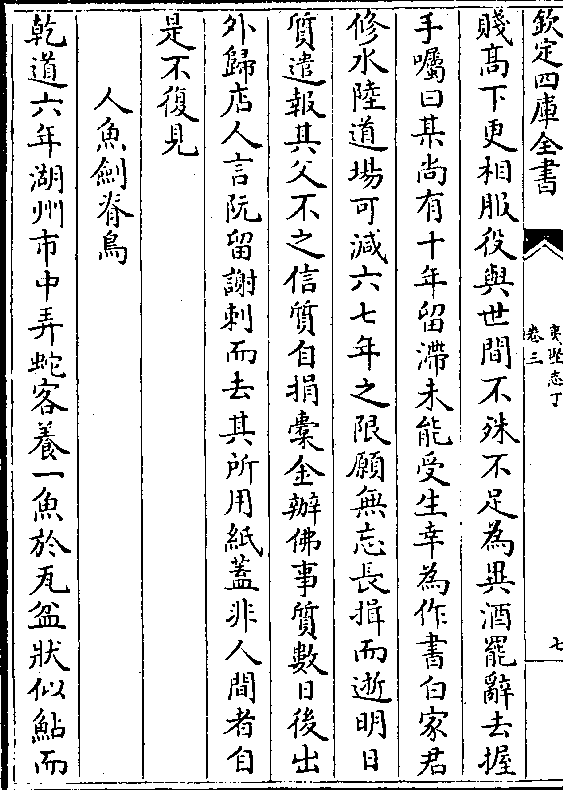 欽定四庫全書
夷堅志丁
卷三
七
賤高下更相服役與世間不殊不足為異酒罷辭去握
手囑曰某尚有十年留滯未能受生幸為作書白家君
修水陸道場可減六七年之限願無忘長揖而逝明日
質遣報其父不之信質自捐橐金辦佛事質數日後出
外歸店人言阮留謝刺而去其所用紙蓋非人間者自
是不復見
人魚劍脊烏
乾道六年湖州市中弄蛇客養一魚於瓦盆狀似鮎而